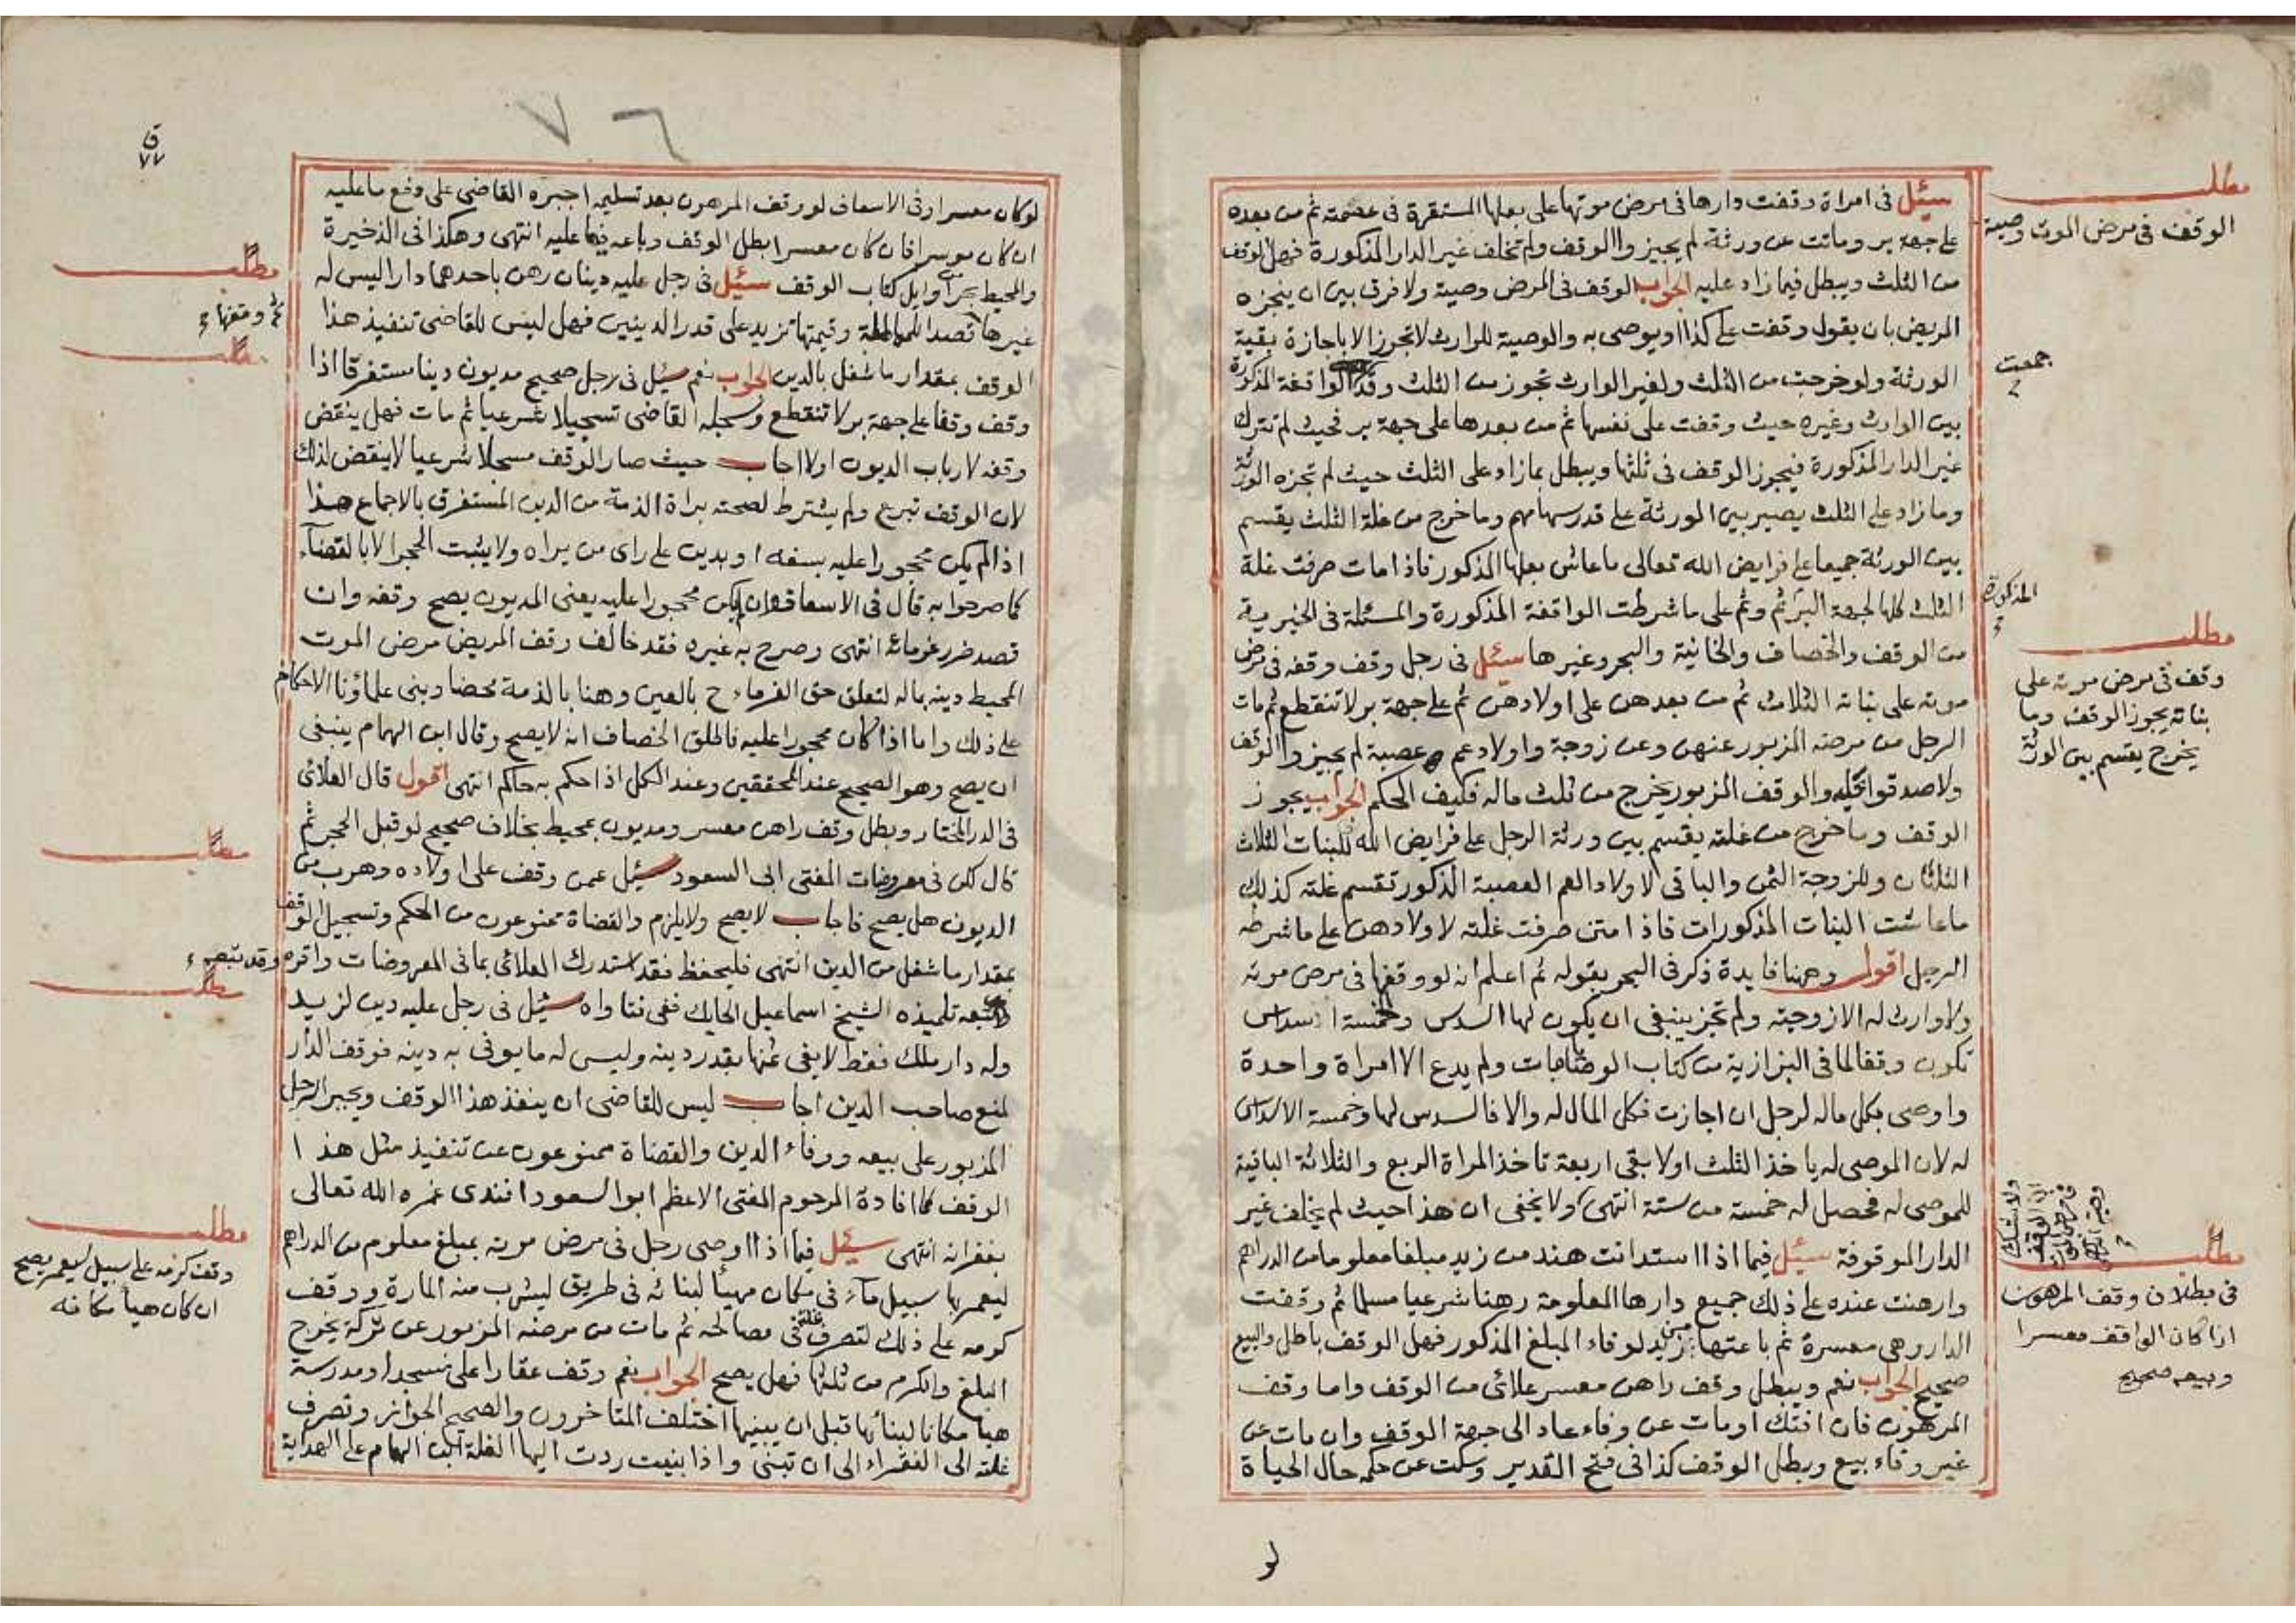 مطلب
الوقف في مرض الموت وصية
سئل في امراة وقفت دارها في مرض موتها على بعلها المستقرة في عصمته ثم من بعده
على جهة بر وماتت عن ورثة لم يجيزوا الوقف ولم تخلف غير الدار المذكورة فهل الوقف
من الثلث ويبطل فيما زاد عليه الجواب الوقف في المرض وصية ولا فرق بين ان ينجزه
المريض بان يقول وقفت على كذا او يوصى به والوصية للوارث لا تجوز الا باجازة بقية
الورثة ولو خرجت من الثلث ولغير الوارث تجوز من الثلث وقد الواقفة المذكورة
جمعت
بين الوارث وغيره حيث وقفت على نفسها ثم من بعدها على جهة بر فحيث لم تترك
غير الدار المذكورة فيجوز الوقف في ثلثها ويبطل بمازاد على الثلث حيث لم تجزه الورثة
وما زاد على الثلث يصير بين الورثة على قدر سهامهم وما خرج من غلة الثلث يقسم
بين الورثة جميعا على فرايض الله تعالى ما عاش بعلها المذكور فاذا مات صرفت غلة
الثلث كلها لجهة البر ثم وثم على ما شرطت الواقفة المذكورة والمسئلة في الخيرية
المذكورة
من الوقف والخصاف والخانية والبحر وغيرها سئل في رجل وقف وقفه في مرض
موته على بناته الثلاث ثم من بعدهن على اولادهن ثم على جهة بر لا تنقطع ثم مات
الرجل من مرضه المزبور عنهن وعن زوجة واولاد عم عصبة لم يجيزوا الوقف
مطلب
وقف في مرض موته على
بناته يجوز الوقف وما
يخرج يقسم بين الورثة
ولا صدقوا عليه والوقف المزبور يخرج من ثلث ماله فكيف الحكم الجواب يجوز
الوقف وما خرج من غلته يقسم بين ورثة الرجل على فرايض الله للبنات الثلاث
الثلثان وللزوجة الثمن والباقي لاولاد العم العصبة الذكور تقسم غلته كذلك
ما عاشت البنات المذكورات فاذا متن صرفت غلته لاولادهن على ما شرطه
الرجل اقول وههنا فايدة ذكر في البحر بقوله ثم اعلم انه لو وقفها في مرض موته
ولا وارث له الا زوجته ولم تجز ينبغي ان يكون لها السدس وخمسة اسداس
تكون وقفا لما في البزازية من كتاب الوصايا مات ولم يدع الا امراة واحدة
واوصى بكل ماله لرجل ان اجازت فكل المال له والا فالسدس لها وخمسة الاسداس
له لان الموصى له ياخذ الثلث اولا بقي اربعة تاخذ المراة الربع والثلاثة الباقية
للموصى له فحصل له خمسة من ستة انتهى ولا يخفى ان هذا حيث لم يخلف غير
الدار الموقوفة سئل فيما اذا استدانت هند من زيد مبلغا معلوما من الدراهم
وارهنت عنده على ذلك جميع دارها المعلومة رهنا شرعيا مسلما ثم وقفت
الدار وهي معسرة ثم باعتها من زيد لوفاء المبلغ المذكور فهل الوقف باطل والبيع
مطلب
في بطلان وقف المرهون
اذا كان الواقف معسرا
وبيعه صحيح
صحيح الجواب نعم ويبطل وقف راهن معسر علائي من الوقف واما وقف
المرهون فان افتك او مات عن وفاء عاد الى جهة الوقف وان مات عن
غير وفاء بيع وبطل الوقف كذا في فتح القدير وسكت عن حكمه حال الحياة
لو
ق
٧٧
٧٦
لو كان معسرا وفي الاسعاف لو وقف المرهون بعد تسليمه اجبره القاضي على دفع ما عليه
ان كان موسرا فان كان معسرا بطل الوقف وباعه فيما عليه انتهى وهكذا في الذخيرة
والمحيط من اوايل كتاب الوقف سئل في رجل عليه دينان رهن باحدهما دارا ليس له
مطلب
ثم وقفها
غيرها قصد المماطلة وقيمتها تزيد على قدر الدينين فهل ليس للقاضي تنفيذ هذا
مطلب
الوقف بمقدار ما شغل بالدين الجواب نعم سئل في رجل صحيح مديون دينا مستغرقا اذا
وقف وقفا على جهة بر لا تنقطع وسجله القاضي تسجيلا شرعيا ثم مات فهل ينقض
وقفه لارباب الديون او لا اجاب حيث صار الوقف مسجلا شرعيا لا ينقض لذلك
لان الوقف تبرع ولم يشترط لصحته براة الذمة من الدين المستغرق بالاجماع هذا
اذا لم يكن محجورا عليه بسفه او بدين على راى من يراه ولا يثبت الحجر الا بالقضآء
كما صرحوا به قال في الاسعاف وان لم يكن محجورا عليه يعني المديون يصح وقفه وان
قصد ضرر غرمائه انتهى وصرح به غيره فقد خالف وقف المريض مرض الموت
المحيط دينه بماله لتعلق حق الغرماء ح بالعين وهنا بالذمة محضا وبنى علماؤنا الاحكام
على ذلك واما اذا كان محجورا عليه فاطلق الخصاف انه لا يصح وقال ابن الهمام ينبغي
ان يصح وهو الصحيح عند المحققين وعند الكل اذا حكم به حاكم انتهى اقول قال العلائي
في الدر المختار وبطل وقف راهن معسر ومديون بمحيط بخلاف صحيح لو قبل الحجر ثم
مطلب
قال لكن في معروضات المفتي ابى السعود سئل عمن وقف على اولاده وهرب من
الديون هل يصح فاجاب لا يصح ولا يلزم والقضاة ممنوعون من الحكم وتسجيل الوقف
بمقدار ما شغل من الدين انتهى فليحفظ فقد استدرك العلائي بما في المعروضات واقره وقد تبعه
مطلب
تلميذه الشيخ اسماعيل الحايك ففي فتاواه سئل في رجل عليه دين لزيد
وله دار ملك فقط لا يفي ثمنها بقدر دينه وليس له ما يوفي به دينه فوقف الدار
لمنع صاحب الدين اجاب ليس للقاضي ان ينفذ هذا الوقف ويجبر الرجل
المزبور على بيعه ووفاء الدين والقضاة ممنوعون عن تنفيذ مثل هذا
الوقف كما افادة المرحوم المفتي الاعظم ابو السعود افندى غمره الله تعالى
بغفرانه انتهى سئل فيما اذا اوصى رجل في مرض موته بمبلغ معلوم من الدراهم
مطلب
وقف كرمه على سبيل ليعمر يصح
ان كان هيأ مكانه
ليعمر بها سبيل مآء في مكان مهيأ لبنائه في طريق ليشرب منه المارة ووقف
كرمه على ذلك لتصرف غلته في مصالحه ثم مات من مرضه المزبور عن تركة يخرج
المبلغ والكرم من ثلثها فهل يصح الجواب نعم وقف عقارا على مسجد او مدرسة
هيأ مكانا لبنائها قبل ان يبنيها اختلف المتاخرون والصحيح الجواز وتصرف
غلته الى الفقراء الى ان تبنى واذا بنيت ردت اليها الغلة ابن الهمام على الهداية